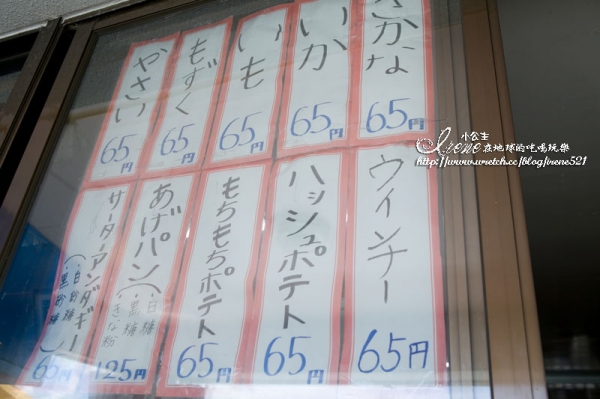 さかな
65円
いか
65円
いも
65円
もずく
65円
やさい
65円
ウインナー
65円
ハッシュポテト
65円
もちもちポテト
65円
あげパン
(・白糖
・黒糖
・きな粉)
125円
サーターアンダギー
(・白砂糖
・黒砂糖)
65円
小公主
Irene在地球的吃喝玩樂
http://www.wretch.cc/blog/irene521